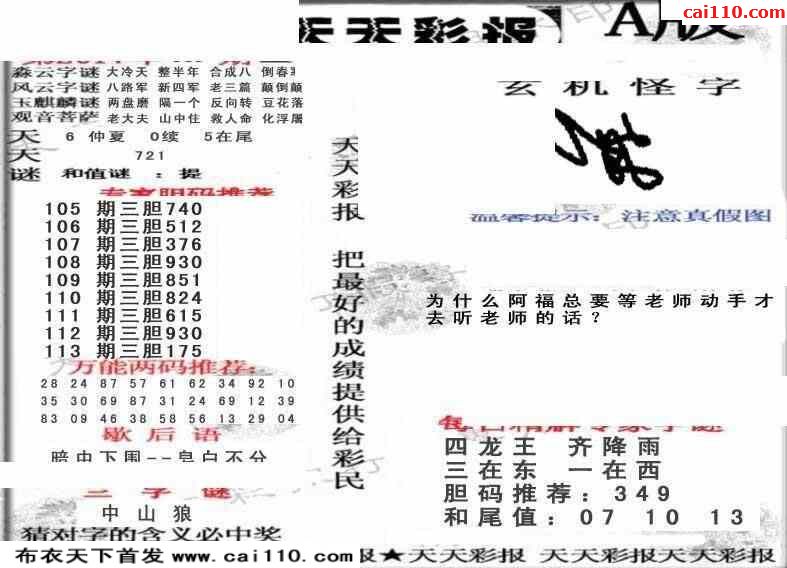 cai110.com
天天彩报 A版
森云字谜 大冷天 整半年 合成八 倒春寒
风云字谜 八路军 新四军 老三篇 颠倒颠
玉麒麟谜 两盘磨 隔一个 反向转 豆花落
观音菩萨 老大夫 山中住 救人命 化浮屠
天 6 仲夏 0续 5在尾
天 721
谜 和值谜 : 提
专家胆码推荐
105 期三胆740
106 期三胆512
107 期三胆376
108 期三胆930
109 期三胆851
110 期三胆824
111 期三胆615
112 期三胆930
113 期三胆175
万能两码推荐:
28 24 87 57 61 62 34 92 10
35 30 69 87 31 24 69 12 39
83 09 46 38 58 56 13 29 04
歇后语
暗中下围--皂白不分
三字谜
中山狼
猜对字的含义必中奖
天天彩报 把最好的成绩提供给彩民
玄机怪字
温馨提示: 注意真假图
为什么阿福总要等老师动手才
去听老师的话?
每日精解专家字谜
四龙王 齐降雨
三在东 一在西
胆码推荐: 349
和尾值: 07 10 13
布衣天下首发 www.cai110.com 报★天天彩报 天天彩报天天彩报